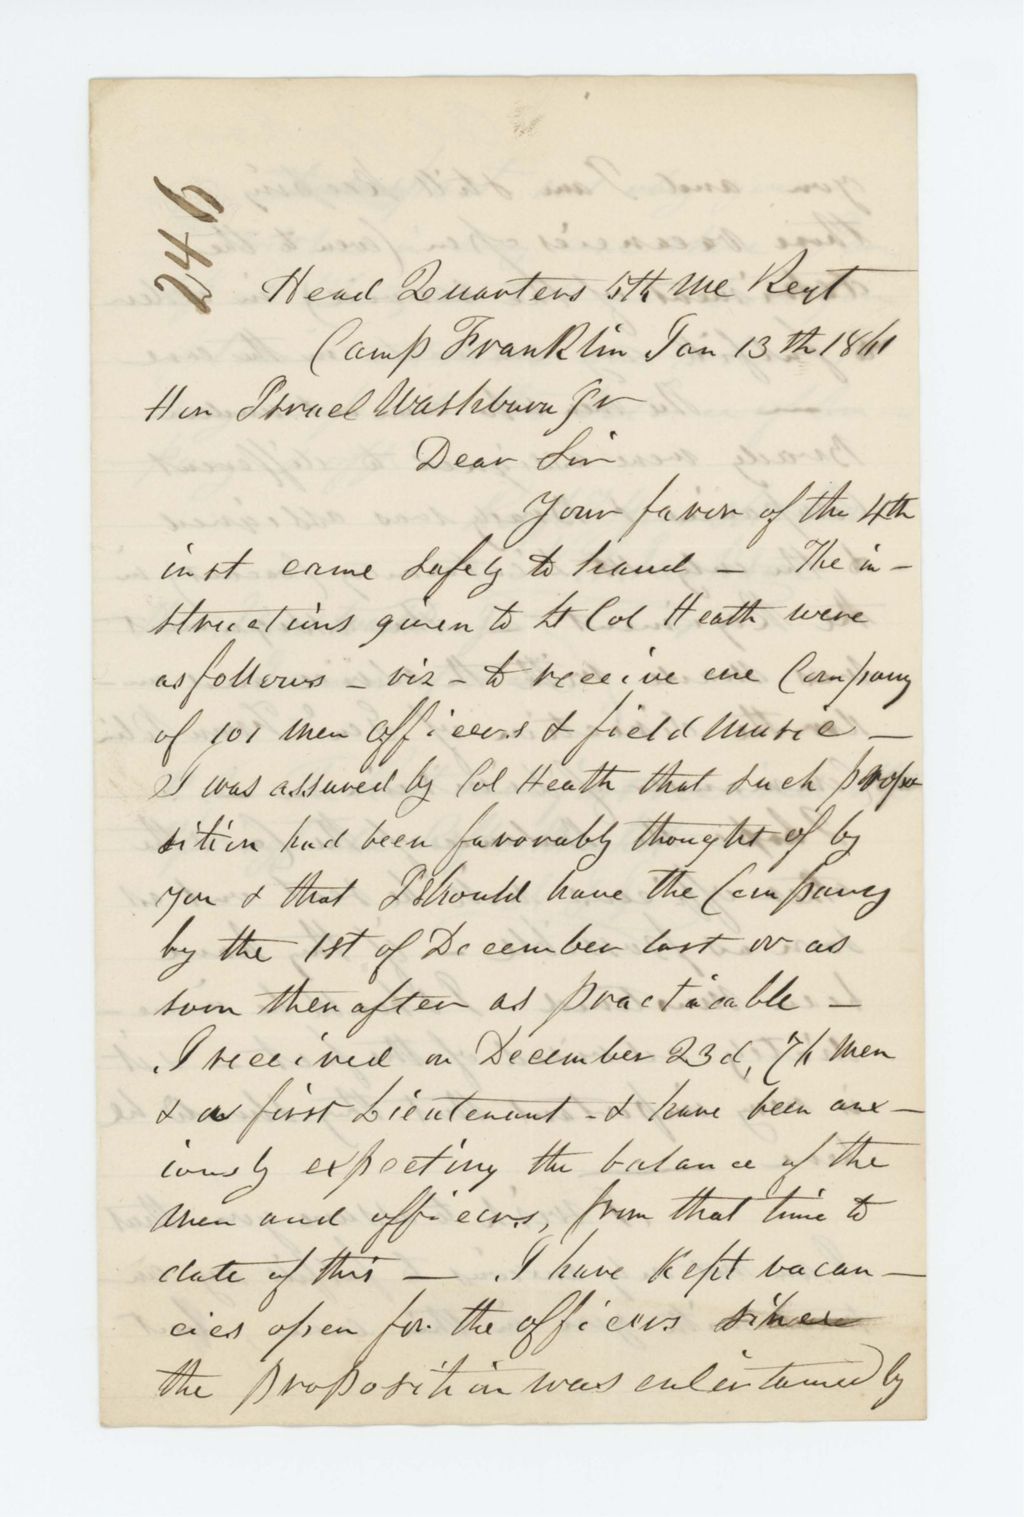 246
Head Quarters 5th Me Regt
Camp Franklin Jan 13th 1861
Hon Israel Washburn Jr
Dear Sir
Your favor of the 4th
inst came safely to hand — The in-
structions given to Lt Col Heath were
as follows — viz — to receive one Company
of 101 men officers & field music —
I was assured by Col Heath that such propo
sition had been favorably thought of by
you & that I should have the Company
by the 1st of December last or as
soon thereafter as practicable —
I received on December 23d, men
& a first Lieutenant - & have been anx-
iously expecting the balance of the
men and officers, from that time to
date of this — I have kept vacan-
cies open for the officers since
the proposition was entertained by